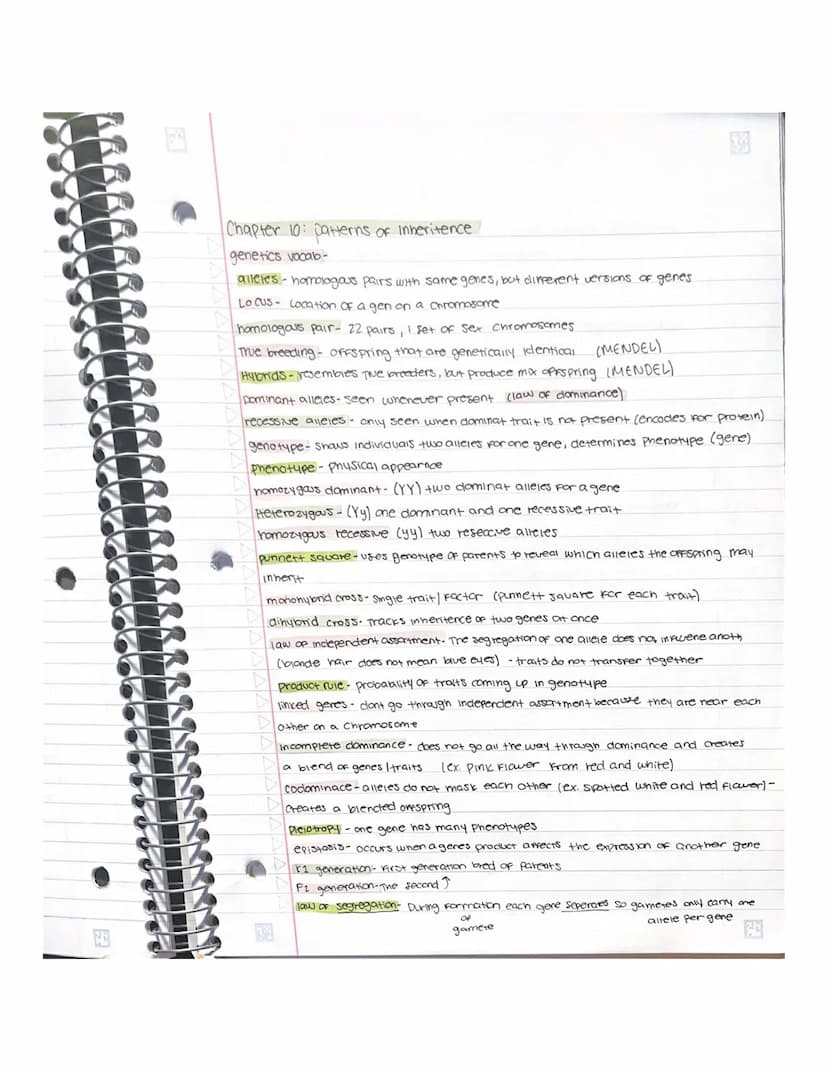 Chapter 10: patterns of inheritence
genetics vocab-
alleles - homologous pairs with same genes, but different versions of genes
Locus- Location of a gen on a chromosome
homologous pair- 22 pairs, 1 set of sex chromosomes
True breeding- offspring that are genetically identical (MENDEL)
Hybrids- resembles true breeders, but produce mix offspring (MENDEL)
Dominant alleles- seen whenever present (law of dominance)
recessive alleles - only seen when dominat trait is not present (encodes for protein)
genotype- shows individuals two alleles for one gene, determines phenotype (gene)
phenotype - physical appearnce
homozygous dominant - (YY) two dominat alleles for a gene
Heterozygous - (Yy) one dominant and one recessive trait
homozygous recessive (yy) two resecive alleles
punnett square- uses genotype of parents to reveal which alleles the offspring may
inherit
monohybrid cross- single trait/factor (punnett square for each trait)
dihybrid cross- Tracks inheritence of two genes at once
law of independent assortment- The segregation of one allele does not influene anoth
(blonde hair does not mean blue eyes) - traits do not transfer together
product rule - probability of traits coming up in genotype
linked genes - dont go through independent assortment because they are near each
other on a chromosome
incomplete dominance - does not go all the way through dominance and creates
a blend of genes/traits (ex. pink flower from red and white)
codominace - alleles do not mask each other (ex. spotted white and red flower) -
creates a blended offspring
pleiotropy - one gene has many phenotypes
epistasis- occurs when a genes product affects the expression of another gene
F1 generation- first generation bred of parents
F2 generation- The second ↑
law of segregation- During formation each gene seperates so gametes only carry one
of allele per gene
gamete